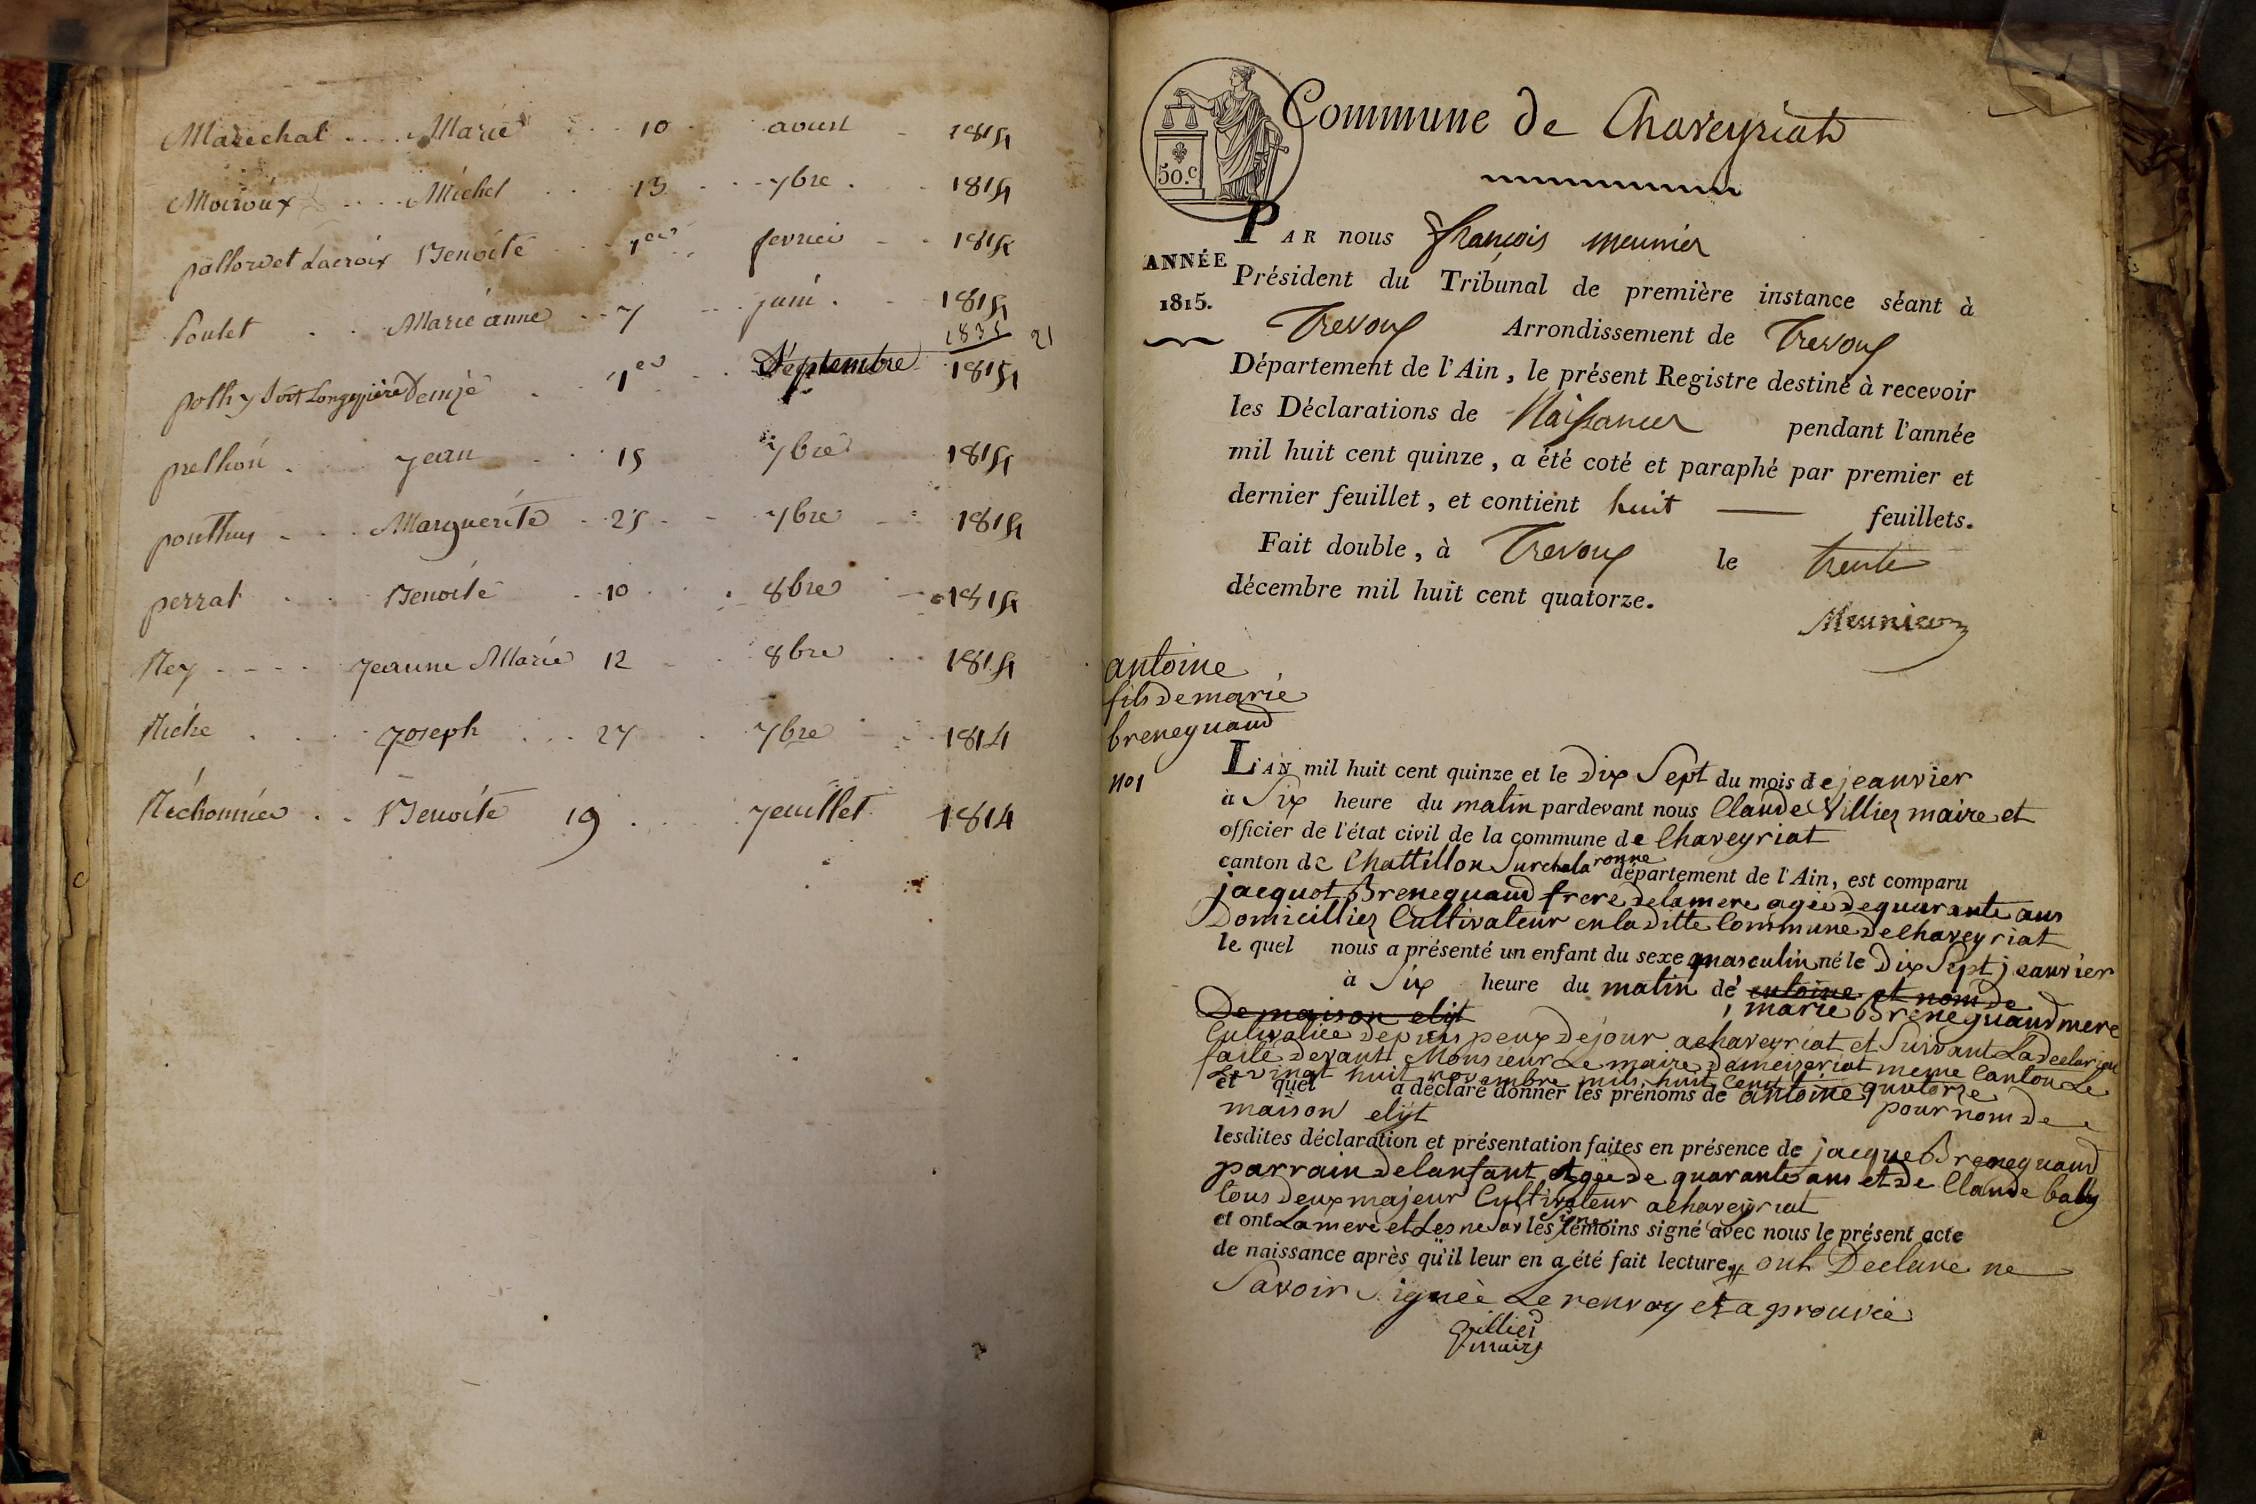 Marechal .... Marie ... 10 . aoust - 1814
Moiroux .... Michel ... 13 ... 7bre . . 1814
pallordet Lacroix Benoite ... 1er . fevrier - . 1814
Poulet . . Marie anne . 7 ... juin . 1814
1835 21
polhy dit Longepierre Denise . . 1er . . Septembre 1814
prelhon . . Jean . . 15 7bre 1814
ponthus - ... Marguerite . 25 - - 7bre - 1814
perrat . .. Benoite . 10 . . 8bre - 1814
Rey - - - - Jeanne Marie 12 - . 8bre .. 1814
Riche . . . Joseph ... 27 . 7bre 1814
Réchonnée .. Benoite 19 . . Jeuillet 1814
50.C
Commune de Chaveyriat
PAR nous françois meunier
ANNÉE
1815.
Président du Tribunal de première instance séant à
Trevoux Arrondissement de Trevoux
Département de l'Ain, le présent Registre destiné à recevoir
les Déclarations de Naissances pendant l'année
mil huit cent quinze, a été coté et paraphé par premier et
dernier feuillet, et contient huit —— feuillets.
Fait double, à Trevoux le trente
décembre mil huit cent quatorze.
Meunier
antoine
fils de marie
brenequaud
No 1
L'AN mil huit cent quinze et le dix Sept du mois de jeanvier
à Six heure du matin pardevant nous Claude Villier maire et
officier de l'état civil de la commune de Chaveyriat
canton de Chattillon Sur chalaronne département de l'Ain, est comparu
jacquot Brenequaud frere de la mere agée de quarante ans
Domicillier Cultivateur en la ditte Commune de Chaveyriat
le quel nous a présenté un enfant du sexe masculin né le Dix Sept jeanvier
à Six heure du matin de antoine et nom de
De maison elijt marie Brenequaud mere
Cultivatice depuis peux de jour a chaveyriat et Suivant La declaration
faite devant Monsieur Le maire de meizeriat meme Canton Le
Le vingt huit novembre mils huit Cent quatorze
et quel a déclaré donner les prénoms de antoine pour nom de
maison elijt
lesdites déclaration et présentation faites en présence de jacque Brenequaud
parrain de lanfant Agée de quarante ans et de Claude baly
tous deux majeur Cultivateur a chaveyriat
et ont La mere et Les les témoins signé avec nous le présent acte
de naissance après qu'il leur en a été fait lecture, ont Declare ne
Savoir Signée Le renvoy et aprouvée
Villier
maire